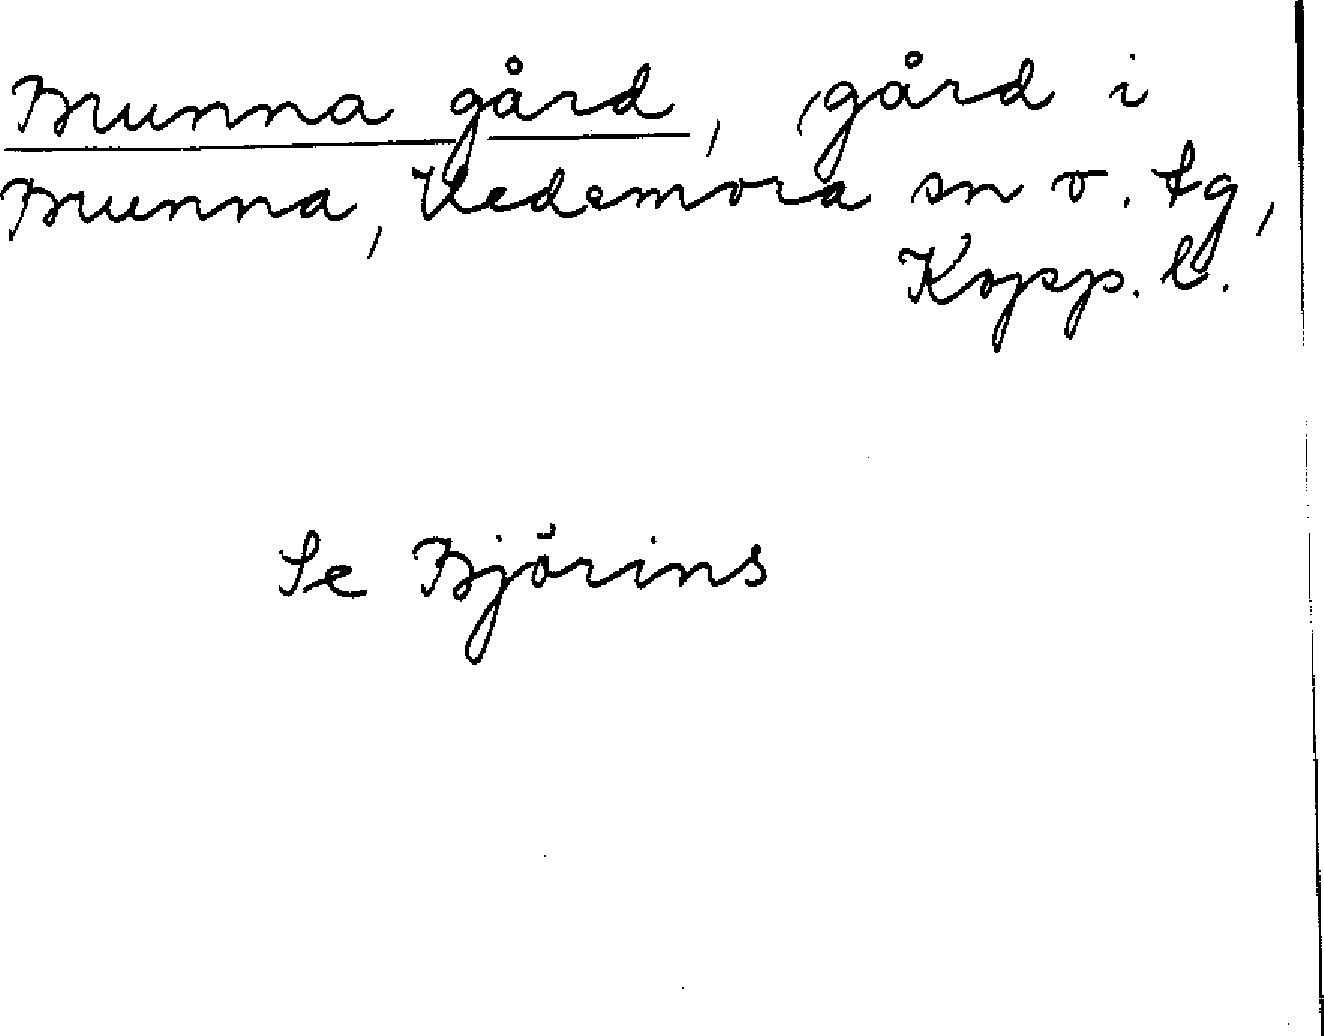 Brunna gård, gård i
Brunna, Hedemora sn o. tg,
Kopp. l.
Se Björins